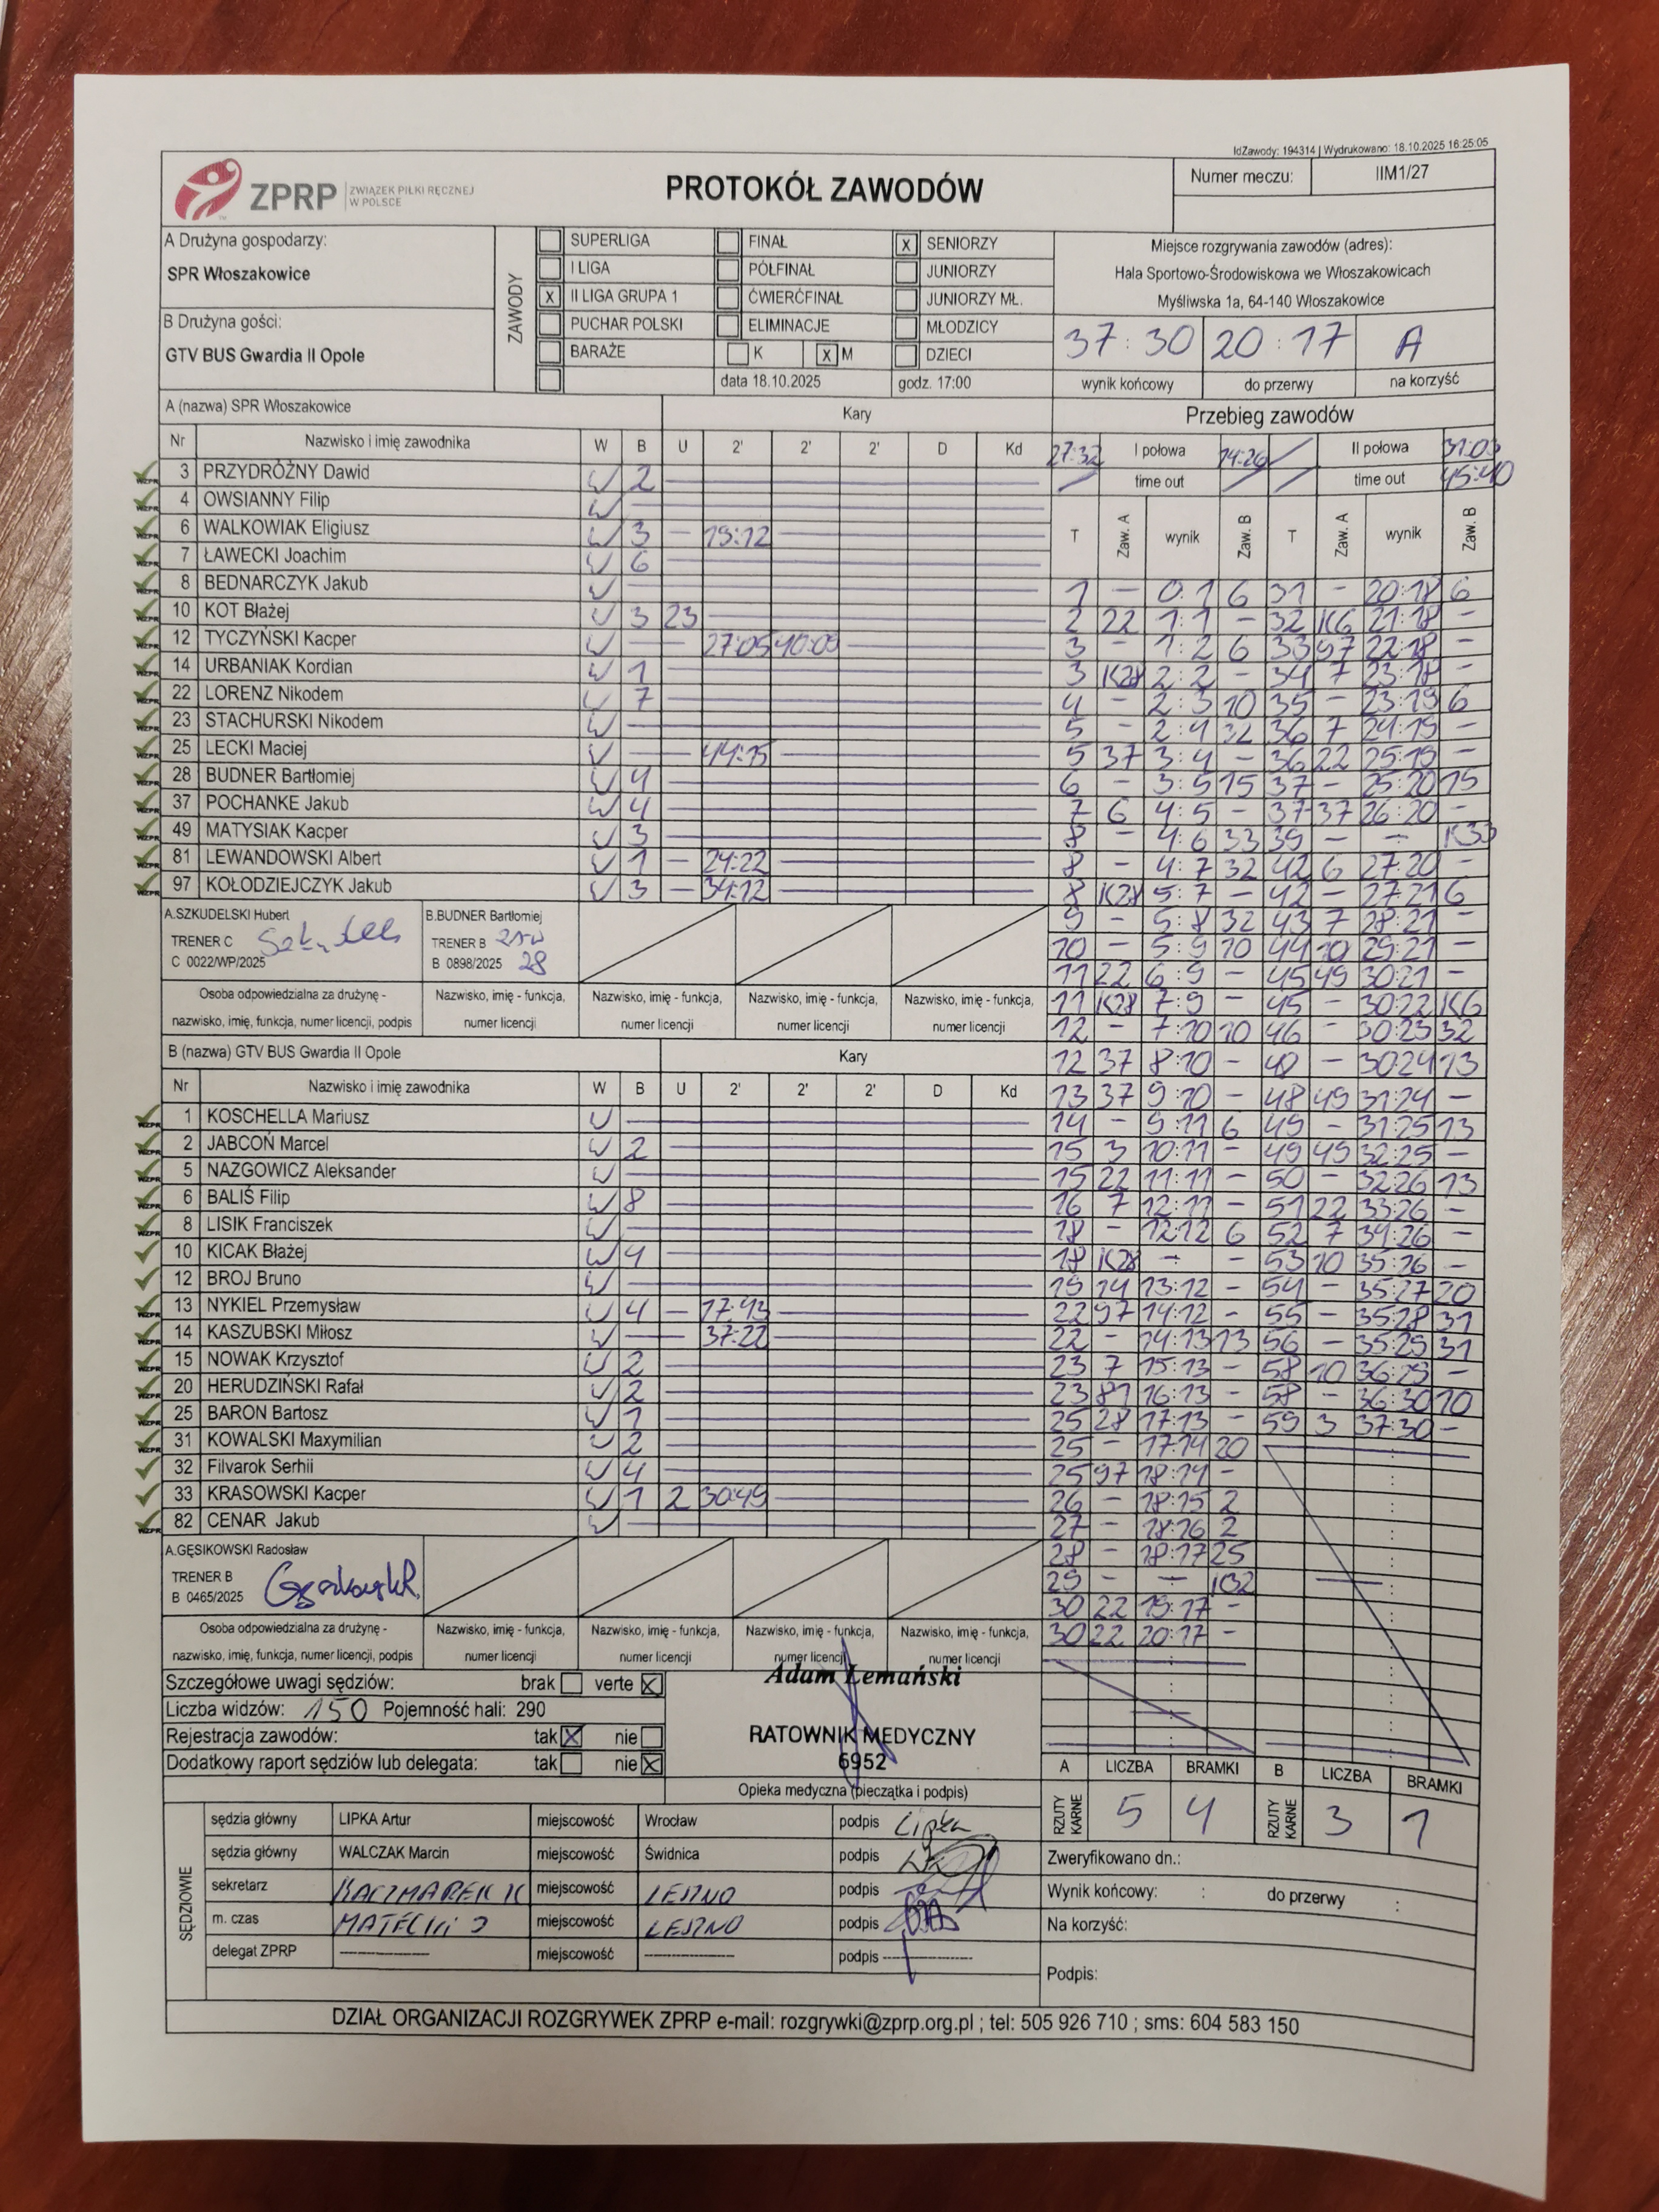 IdZawody: 194314 | Wydrukowano: 18.10.2025 16:25:05
ZPRP ZWIĄZEK PIŁKI RĘCZNEJ W POLSCE
PROTOKÓŁ ZAWODÓW
Numer meczu: IIM1/27
A Drużyna gospodarzy:
SPR Włoszakowice
B Drużyna gości:
GTV BUS Gwardia II Opole
ZAWODY
SUPERLIGA FINAŁ X SENIORZY
I LIGA PÓŁFINAŁ JUNIORZY
X II LIGA GRUPA 1 ĆWIERĆFINAŁ JUNIORZY MŁ.
PUCHAR POLSKI ELIMINACJE MŁODZICY
BARAŻE K X M DZIECI
data 18.10.2025 godz. 17:00
Miejsce rozgrywania zawodów (adres):
Hala Sportowo-Środowiskowa we Włoszakowicach
Myśliwska 1a, 64-140 Włoszakowice
37:30 20:17 A
wynik końcowy do przerwy na korzyść
A (nazwa) SPR Włoszakowice Kary
Nr Nazwisko i imię zawodnika W B U 2' 2' 2' D Kd
3 PRZYDRÓŻNY Dawid W 2
4 OWSIANNY Filip W
6 WALKOWIAK Eligiusz W 3 - 19:12
7 ŁAWECKI Joachim W 6
8 BEDNARCZYK Jakub W
10 KOT Błażej W 3 23
12 TYCZYŃSKI Kacper W 27:05 40:09
14 URBANIAK Kordian W 1
22 LORENZ Nikodem W 7
23 STACHURSKI Nikodem W
25 LECKI Maciej W 44:15
28 BUDNER Bartłomiej W 4
37 POCHANKE Jakub W 4
49 MATYSIAK Kacper W 3
81 LEWANDOWSKI Albert W 1 - 24:22
97 KOŁODZIEJCZYK Jakub W 3 - 34:12
A.SZKUDELSKI Hubert
TRENER C
C 0022/WP/2025
B.BUDNER Bartłomiej
TRENER B
B 0898/2025 28
Osoba odpowiedzialna za drużynę - nazwisko, imię, funkcja, numer licencji, podpis
Nazwisko, imię - funkcja, numer licencji
Nazwisko, imię - funkcja, numer licencji
Nazwisko, imię - funkcja, numer licencji
Nazwisko, imię - funkcja, numer licencji
B (nazwa) GTV BUS Gwardia II Opole Kary
Nr Nazwisko i imię zawodnika W B U 2' 2' 2' D Kd
1 KOSCHELLA Mariusz W
2 JABCOŃ Marcel W 2
5 NAZGOWICZ Aleksander W
6 BALIŚ Filip W 8
8 LISIK Franciszek W
10 KICAK Błażej W 4
12 BROJ Bruno W
13 NYKIEL Przemysław W 4 - 17:43
14 KASZUBSKI Miłosz W 37:22
15 NOWAK Krzysztof W 2
20 HERUDZIŃSKI Rafał W 2
25 BARON Bartosz W 1
31 KOWALSKI Maxymilian W 2
32 Filvarok Serhii W 4
33 KRASOWSKI Kacper W 1 2 30:49
82 CENAR Jakub W
A.GĘSIKOWSKI Radosław
TRENER B
B 0465/2025
Osoba odpowiedzialna za drużynę - nazwisko, imię, funkcja, numer licencji, podpis
Nazwisko, imię - funkcja, numer licencji
Nazwisko, imię - funkcja, numer licencji
Nazwisko, imię - funkcja, numer licencji
Nazwisko, imię - funkcja, numer licencji
Przebieg zawodów
27:32 I połowa 14:26 II połowa 31:03
time out time out 45:40
T Zaw. A wynik Zaw. B T Zaw. A wynik Zaw. B
1 - 0:1 6 31 - 20:18 6
2 22 1:1 - 32 K6 21:18 -
3 - 1:2 6 33 97 22:18 -
3 K28 2:2 - 34 7 23:18 -
4 - 2:3 10 35 - 23:19 6
5 - 2:4 32 36 7 24:19 -
5 37 3:4 - 36 22 25:19 -
6 - 3:5 15 37 - 25:20 15
7 6 4:5 - 37 37 26:20 -
8 - 4:6 33 39 - - K33
8 - 4:7 32 42 6 27:20 -
8 K28 5:7 - 42 - 27:21 6
9 - 5:8 32 43 7 28:21 -
10 - 5:9 10 44 10 29:21 -
11 22 6:9 - 45 49 30:21 -
11 K28 7:9 - 45 - 30:22 K6
12 - 7:10 10 46 - 30:23 32
12 37 8:10 - 48 - 30:24 13
13 37 9:10 - 48 49 31:24 -
14 - 9:11 6 49 - 31:25 13
15 3 10:11 - 49 49 32:25 -
15 22 11:11 - 50 - 32:26 13
16 7 12:11 - 51 22 33:26 -
18 - 12:12 6 52 7 34:26 -
18 K28 - - 53 10 35:26 -
19 14 13:12 - 54 - 35:27 20
22 97 14:12 - 55 - 35:28 31
22 - 14:13 13 56 - 35:29 31
23 7 15:13 - 58 10 36:29 -
23 81 16:13 - 58 - 36:30 10
25 28 17:13 - 59 3 37:30 -
25 - 17:14 20
25 97 18:14 -
26 - 18:15 2
27 - 18:16 2
28 - 18:17 25
29 - - K32
30 22 19:17 -
30 22 20:17 -
Szczegółowe uwagi sędziów: brak verte X
Liczba widzów: 150 Pojemność hali: 290
Rejestracja zawodów: tak X nie
Dodatkowy raport sędziów lub delegata: tak nie X
Adam Lemański
RATOWNIK MEDYCZNY
6952
Opieka medyczna (pieczątka i podpis)
A LICZBA BRAMKI B LICZBA BRAMKI
RZUTY KARNE 5 4 RZUTY KARNE 3 1
SĘDZIOWIE
sędzia główny LIPKA Artur miejscowość Wrocław podpis Lipka
sędzia główny WALCZAK Marcin miejscowość Świdnica podpis
sekretarz KACZMAREK K miejscowość LESZNO podpis
m. czas miejscowość LESZNO podpis
delegat ZPRP ---------- miejscowość ---------- podpis ----------
Zweryfikowano dn.:
Wynik końcowy: : do przerwy :
Na korzyść:
Podpis:
DZIAŁ ORGANIZACJI ROZGRYWEK ZPRP e-mail: rozgrywki@zprp.org.pl ; tel: 505 926 710 ; sms: 604 583 150